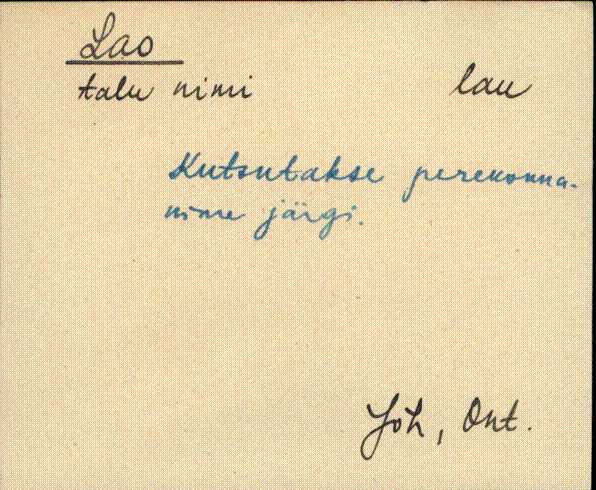 Lao
talu nimi lau
Kutsutakse perekonna-
nime järgi.
Joh, Ont.